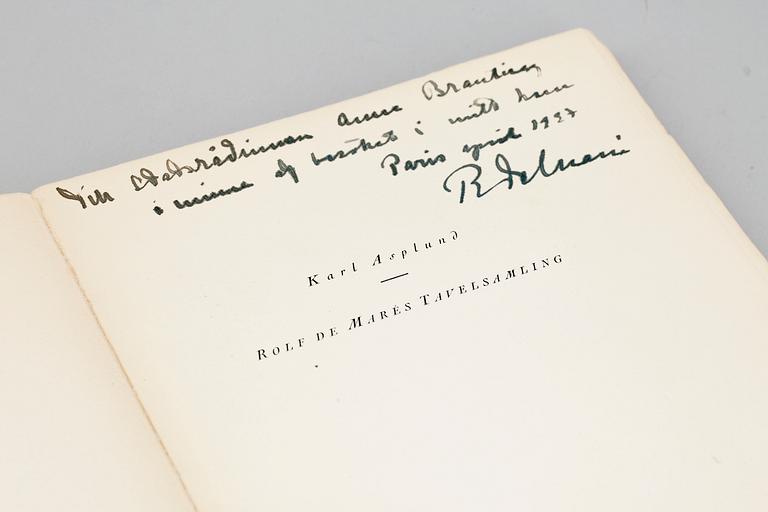 Till Statsrådinnan Anna Branting
i minne af besöket i mitt hem
Paris april 1927
R de Maré
Karl Asplund
ROLF DE MARÉS TAVELSAMLING